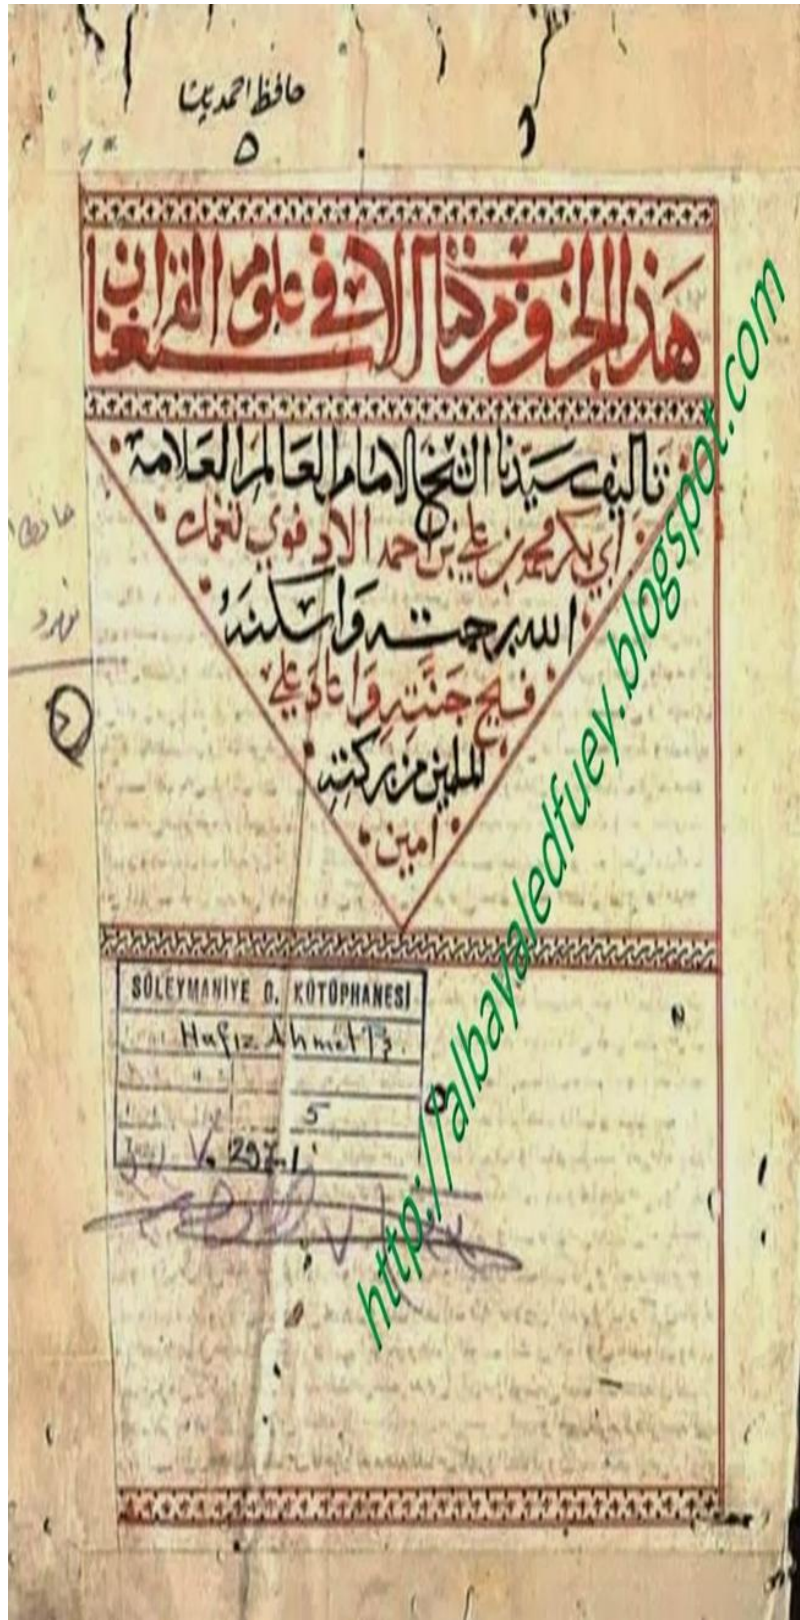 حافظ احمد پاشا
٥
هذا الجزو من كتاب الاستغنا في علوم القران
تأليف سيدنا الشيخ الامام العالم العلامة
ابي بكر محمد بن علي بن احمد الادفوي تغمده
الله برحمته واسكنه
فسيح جنته واعاد علي
المسلمين من بركته
امين
SÜLEYMANİYE G. KÜTÜPHANESİ
Hafız Ahmet P.
5
297.1
http://albayaledfuey.blogspot.com